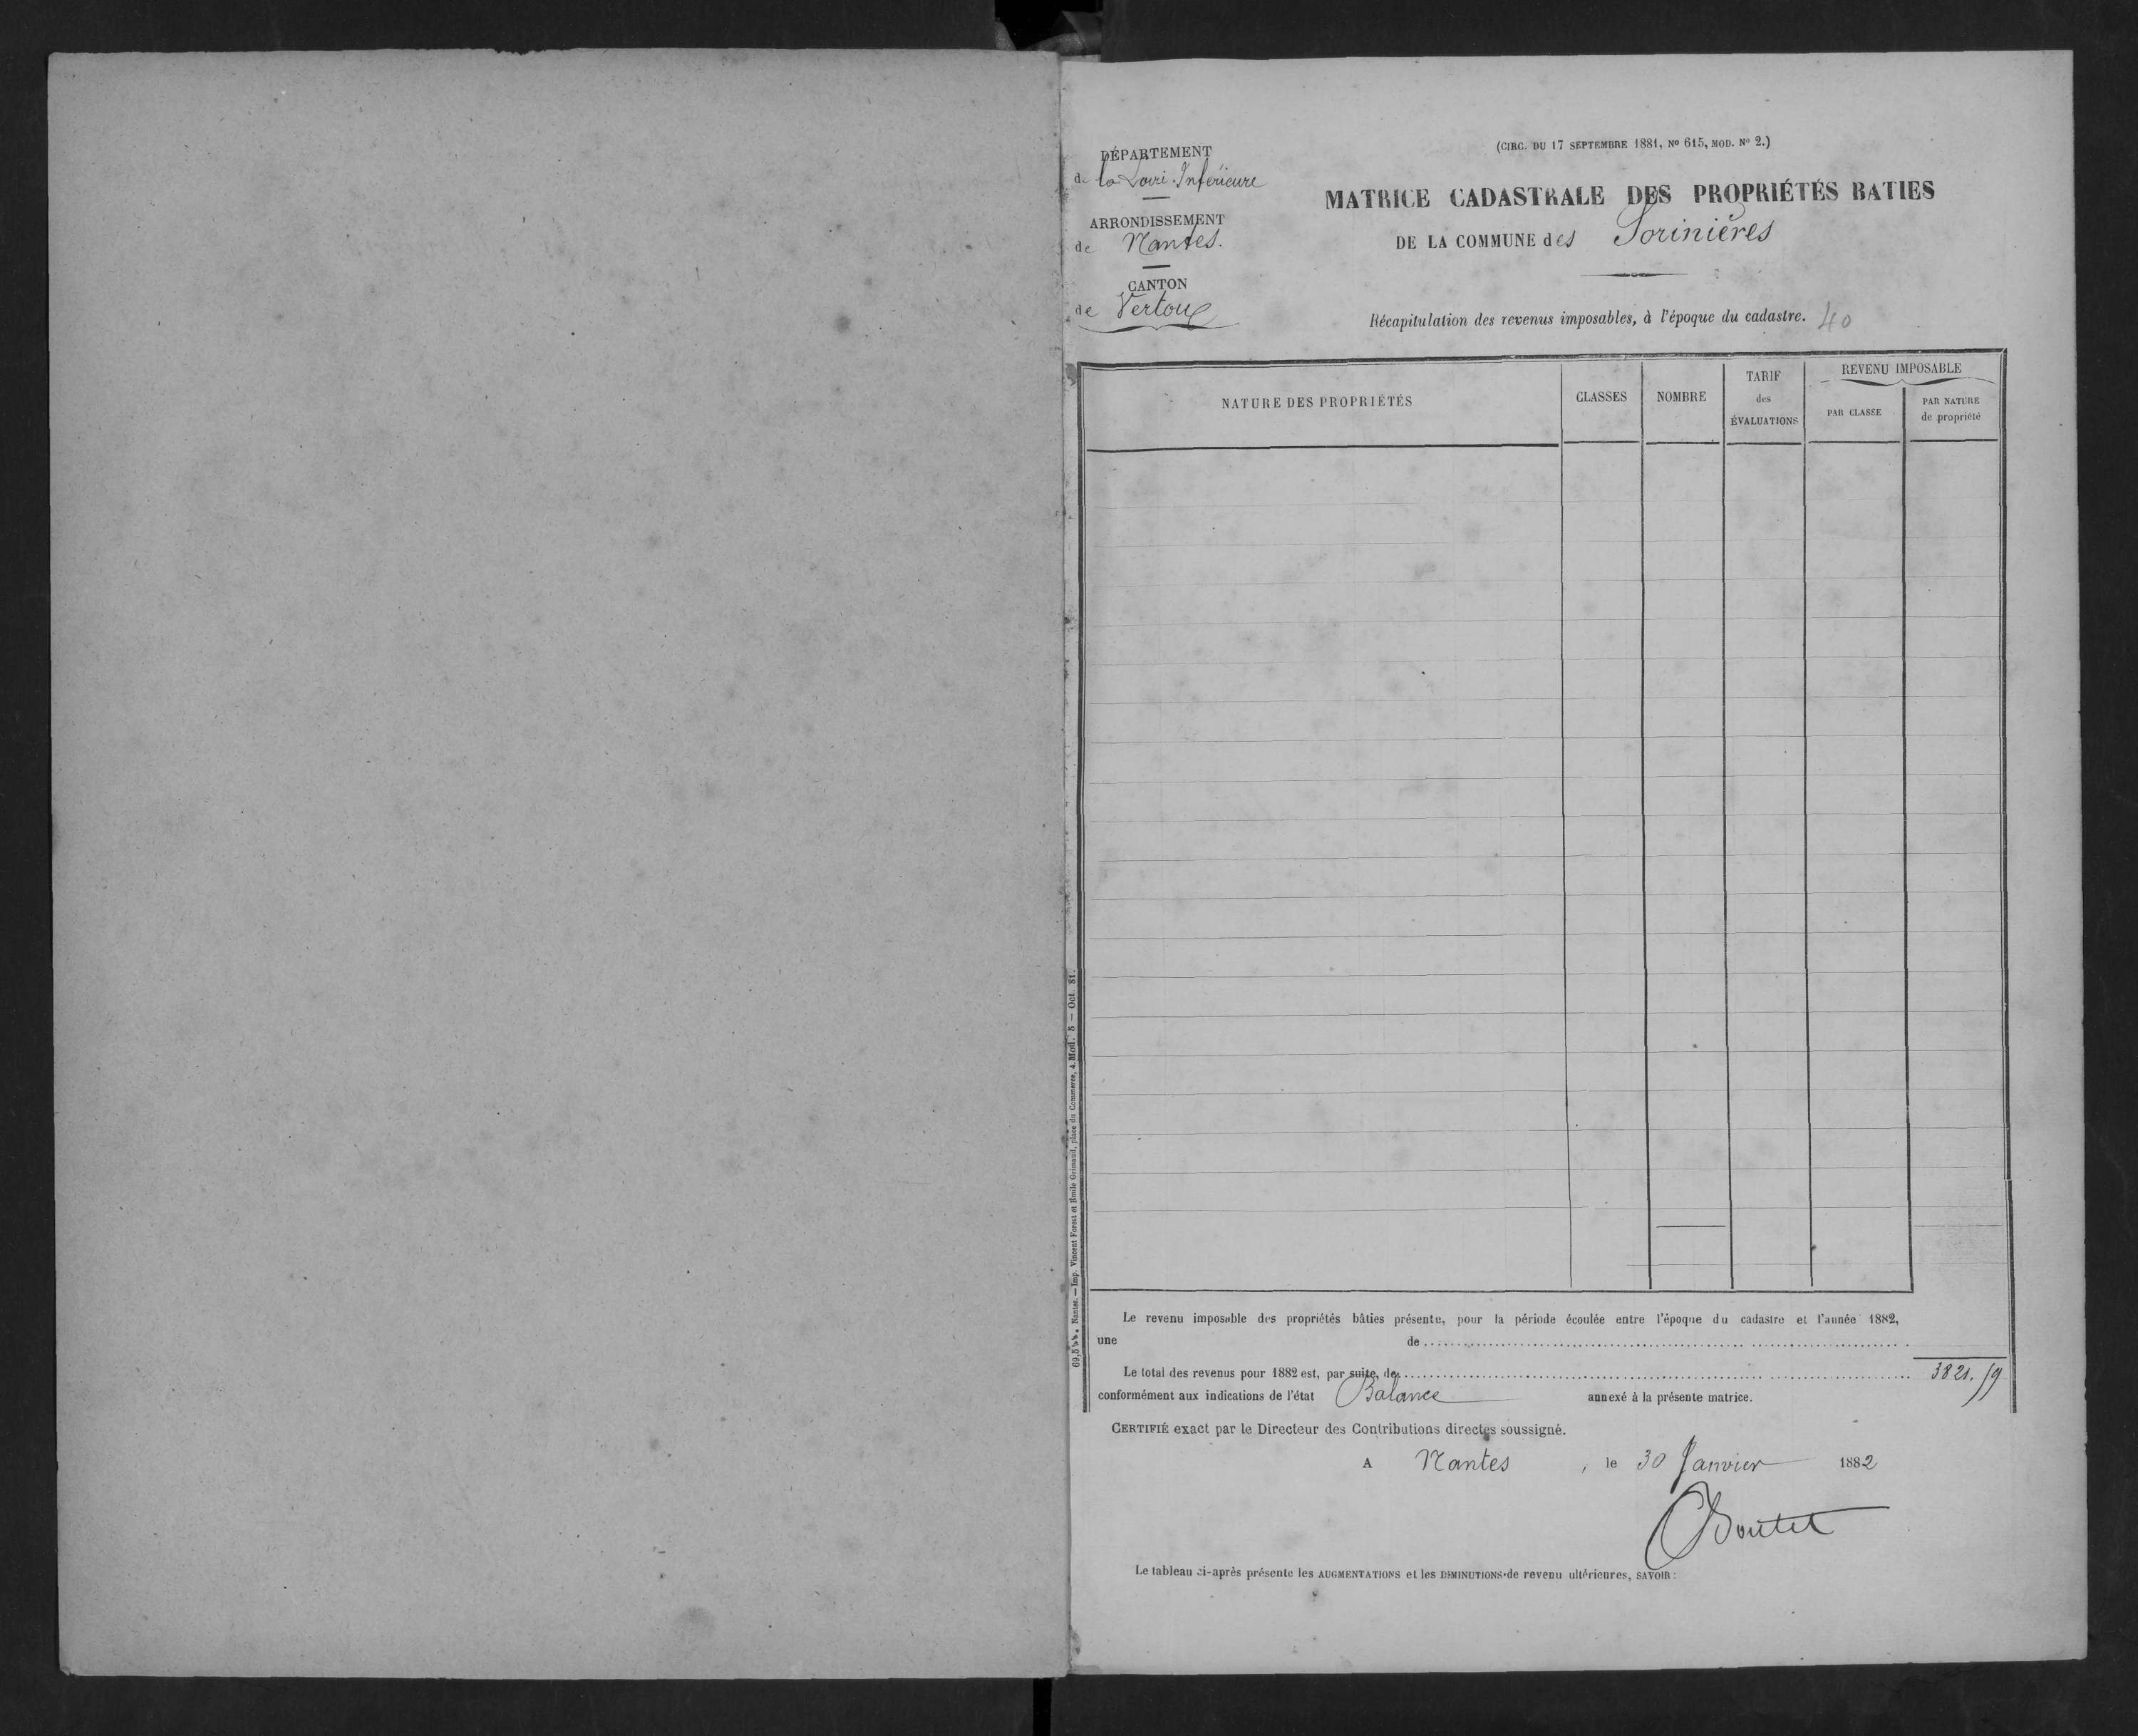 DÉPARTEMENT
de la Loire-Inférieure
ARRONDISSEMENT
de Nantes.
CANTON
de Vertou
(CIRC. DU 17 SEPTEMBRE 1881, Nº 615, MOD. Nº 2.)
MATRICE CADASTRALE DES PROPRIÉTÉS BATIES
DE LA COMMUNE des Sorinières
Récapitulation des revenus imposables, à l'époque du cadastre. 40
NATURE DES PROPRIÉTÉS
CLASSES
NOMBRE
TARIF
des
ÉVALUATIONS
REVENU IMPOSABLE
PAR CLASSE
PAR NATURE
de propriété
Nantes. — Imp. Vincent Forest et Emile Grimaud, place du Commerce, 4. Mod. 5 — Oct. 81.
Le revenu imposable des propriétés bâties présente, pour la période écoulée entre l'époque du cadastre et l'année 1882,
une de
Le total des revenus pour 1882 est, par suite, de 3821.19
conformément aux indications de l'état Balance annexé à la présente matrice.
CERTIFIÉ exact par le Directeur des Contributions directes soussigné.
A Nantes, le 30 Janvier 1882
Boutet
Le tableau ci-après présente les AUGMENTATIONS et les DIMINUTIONS de revenu ultérieures, SAVOIR :